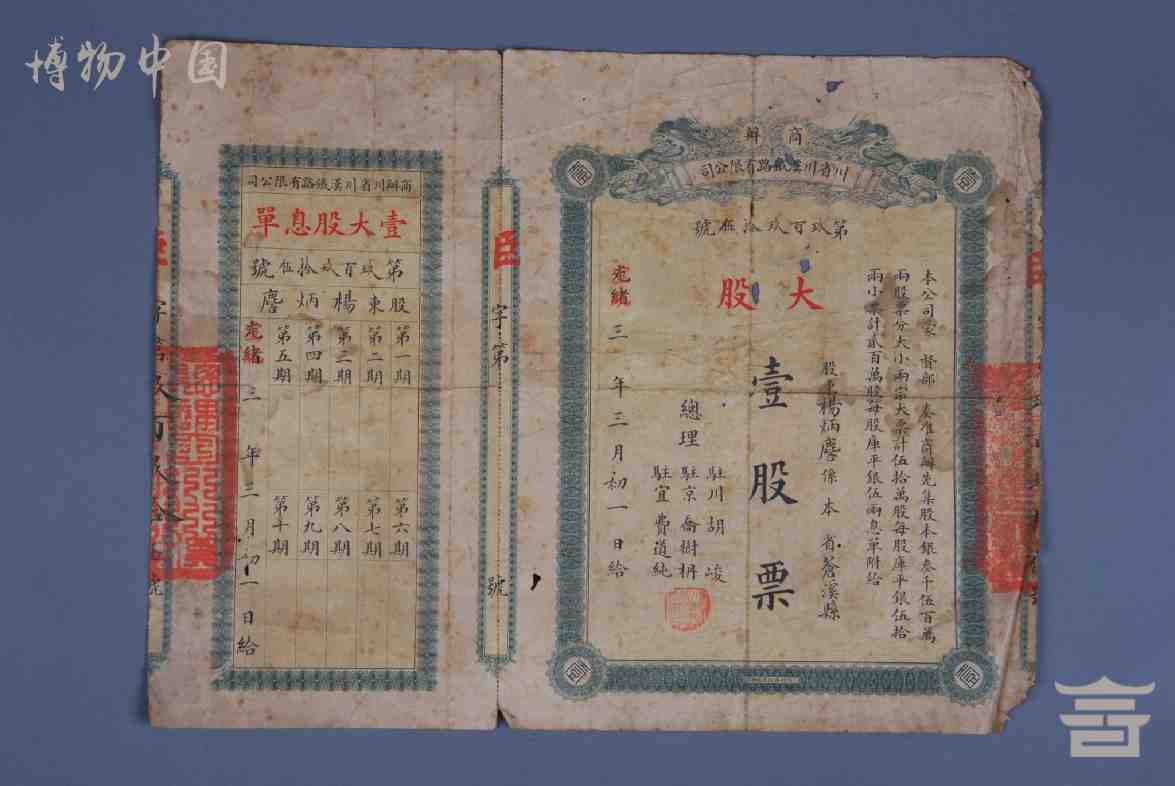 博物中国
商辦
川省川漢鐵路有限公司
第玖百玖拾伍號
本公司蒙 督部 奏准商辦先集股本銀叁千伍百萬
兩股票分大小兩宗大票計伍拾萬股每股庫平銀伍拾
兩小票計貳百萬股每股庫平銀伍兩息單附給
股東楊炳麐係本省蒼溪縣
大股
壹股票
總理
駐川胡峻
駐京喬樹枏
駐宜費道純
光緒三年三月初一日給
臣字第 號
商辦川省川漢鐵路有限公司
壹大股息單
第玖百玖拾伍號
股東楊炳麐
第一期
第二期
第三期
第四期
第五期
第六期
第七期
第八期
第九期
第十期
光緒三年三月初一日給